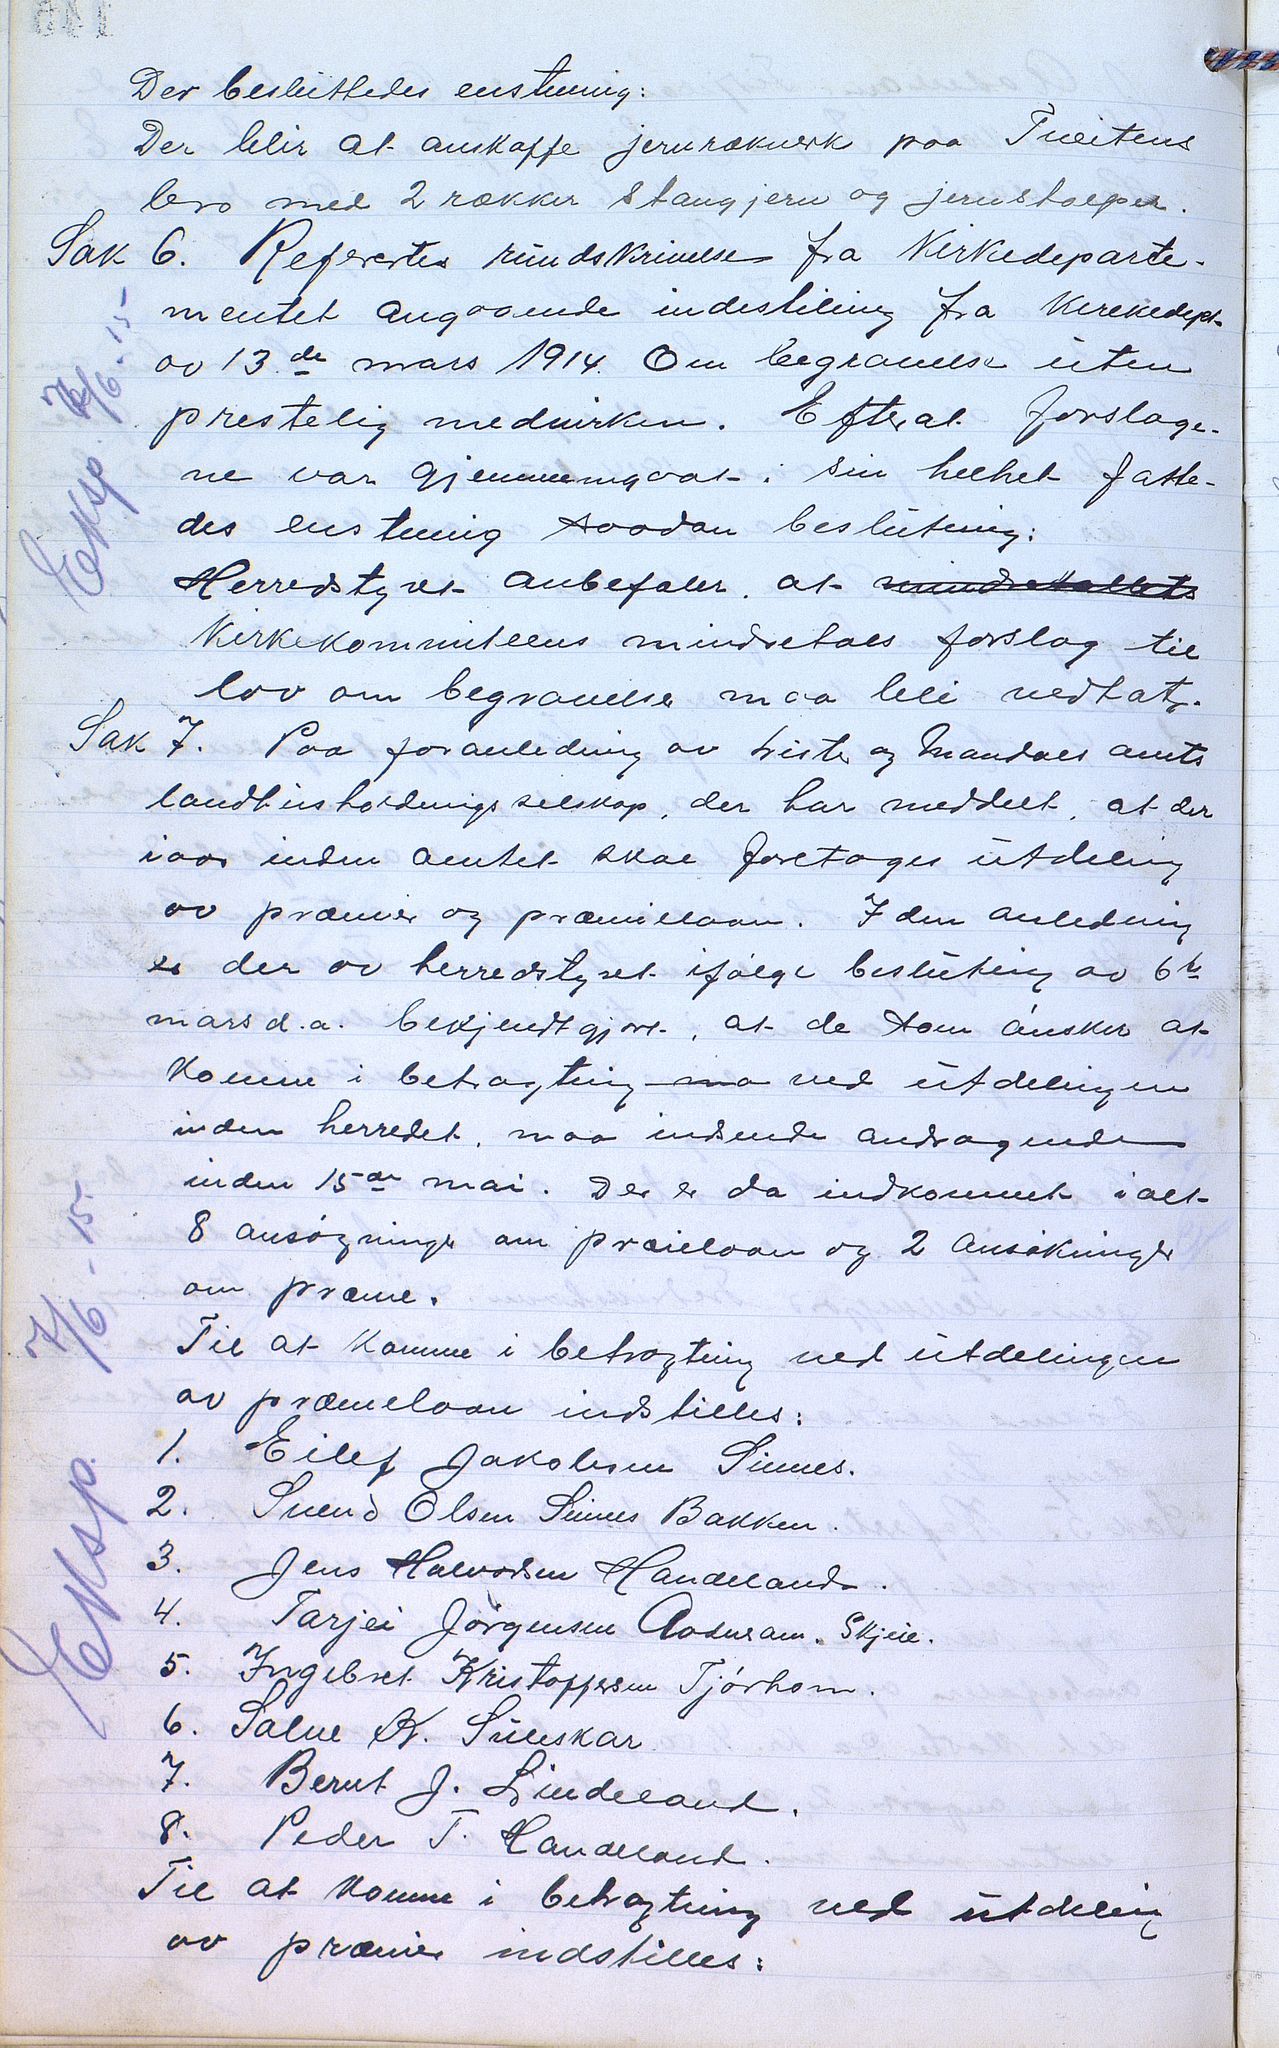 Der besluttedes enstemig:
Der blir at anskaffe jernrækverk paa Tveitens
bro med 2 rækker stangjern og jernstolper.
Sak 6. Refererte rundskrivelse fra Kirkedeparte-
mentet angaaende indstiling fra Kirkedept
av 13de mars 1914. Om begravelse uten
prestelig medvirken. Efterat forslage-
ne var gjennemgaat i sin helhet fatte-
des enstemig saadan beslutning:
Herredstyret anbefaler, at mindretallets
Kirkekomiteens mindretals forslag til
lov om begravelse maa bli vedtat.
Sak 7. Paa foranledning av Lister og Mandals amts
landhusholdnings selskap, der har meddelt, at der
iaar inden amtet skal foretages utdeling
av præmier og præmielaan. I den anledning
er der av herredstyret ifølge beslutning av 6te
mars d.a. bekjendtgjort, at de som ønsker at
komme i betragtning ma ved utdelingen
inden herredet, maa indsende andragende
inden 15de mai. Der er da indkommet ialt
8 ansøgninger om præielaan og 2 ansøkninger
om præme.
Til at komme i betragtning ved utdelingen
av præmelaan indstilles:
1. Eilef Jakobsen Sinnes.
2. Svend Olsen Sinnes Bakken.
3. Jens Halvorsen Handeland.
4. Tarjei Jørgensen Aadneram. Skjeie.
5. Ingebret Kristoffersen Tjørhom.
6. Salve K. Suleskar
7. Bernt J. Lindeland.
8. Peder T. Handeland.
Til at komme i betragtning ved utdeling
av præmier indstilles:
Eksp. 7/6-15
Eksp. 7/6-15.